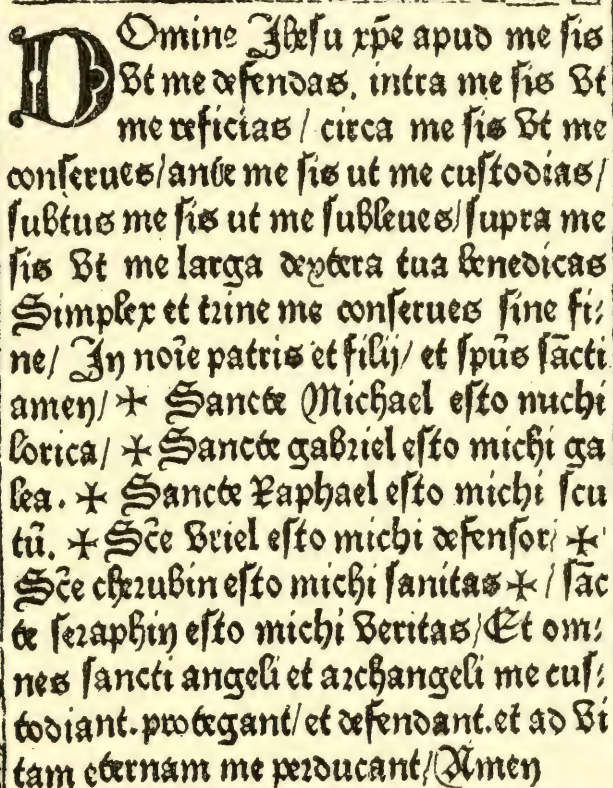 DOmine Jhesu xp̄e apud me sis
Vt me defendas, intra me sis Vt
me reficias / circa me sis Vt me
conserues/ante me sis ut me custodias/
subtus me sis ut me subleues/supra me
sis Vt me larga dextera tua benedicas
Simplex et trine me conserues sine fi:
ne/ Jn noīe patris et filij/ et spūs sācti
amen/ ✢ Sancte Michael esto nuchi
lorica/ ✢ Sancte gabriel esto michi ga
lea. ✢ Sancte Raphael esto michi scu
tū. ✢ Sc̄e Vriel esto michi defensor/ ✢
Sc̄e cherubin esto michi sanitas ✢ / sāc
te seraphin esto michi Veritas/ Et om:
nes sancti angeli et archangeli me cus:
todiant. protegant/ et defendant. et ad Vi
tam eternam me perducant/ Amen